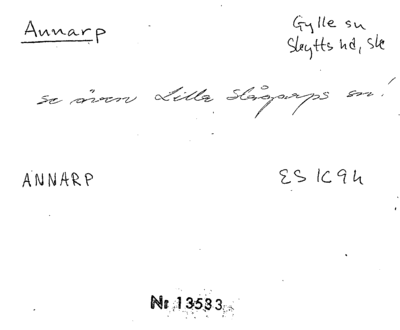 Annarp
Gylle sn
Skytts hd, Sk
se även Lilla Slågarps sn!
ANNARP
ES 1C 9h
Nr 13533